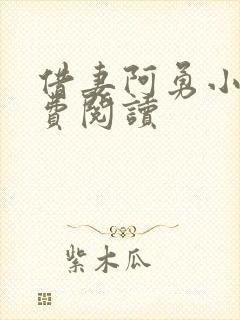 借妻阿勇小
費閱讀
紫木瓜